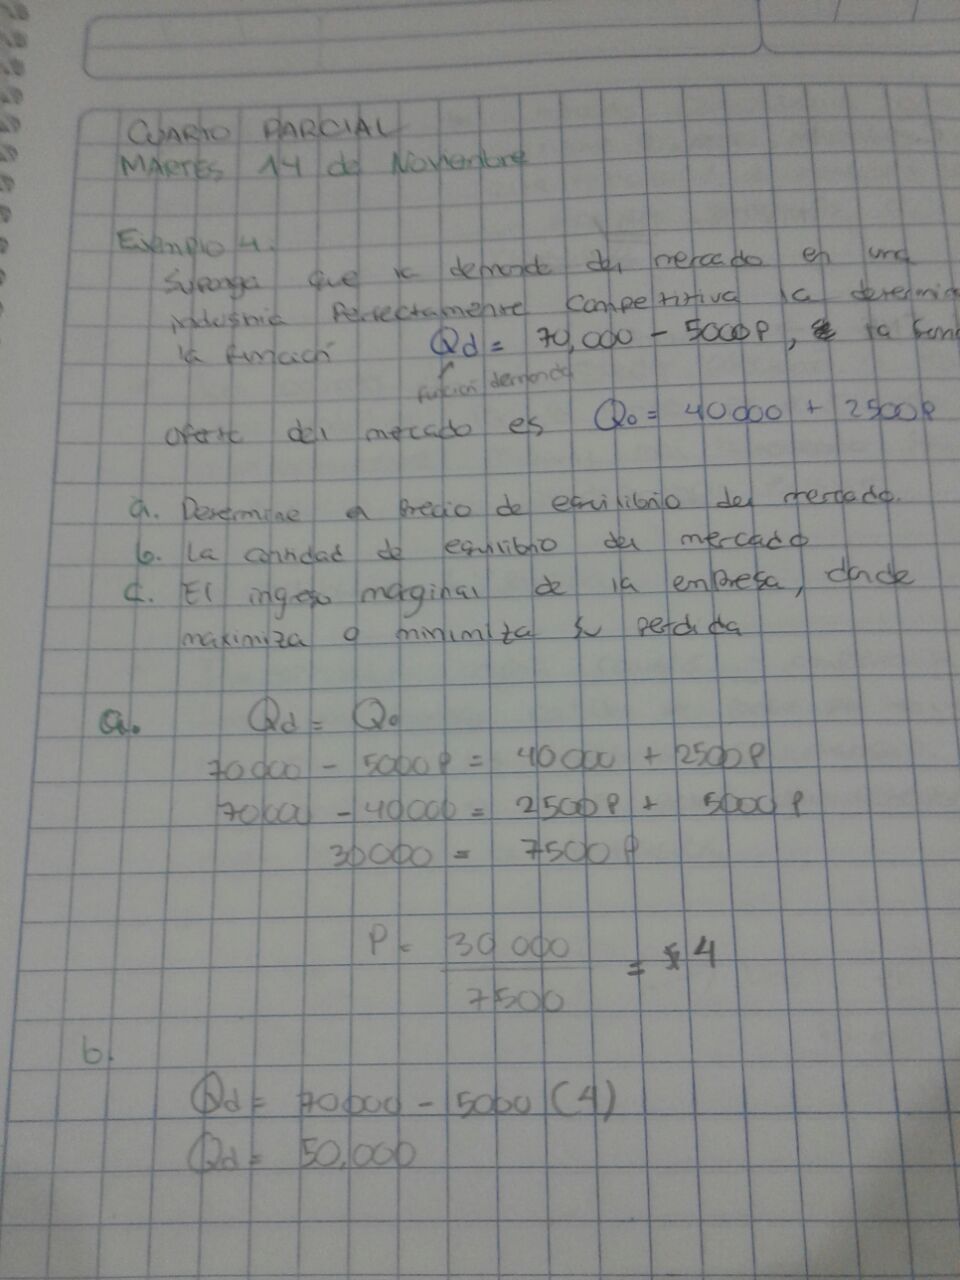 CUARTO PARCIAL
MARTES 14 de Noviembre
Ejemplo 4.
Suponga que la demanda del mercado en una
industria Perfectamente Competitiva la determin
la función Qd = 70,000 - 5000P, la func
función demanda
oferta del mercado es Qo = 40000 + 2500P
a. Determine el Precio de equilibrio del mercado.
b. La cantidad de equilibrio del mercado
c. El ingreso marginal de la empresa, donde
maximiza o minimiza su perdida
a. Qd = Qo
70000 - 5000P = 40000 + 2500P
70000 - 40000 = 2500P + 5000P
30000 = 7500P
P = 30 000 / 7500 = $4
b.
Qd = 70000 - 5000 (4)
Qd = 50,000